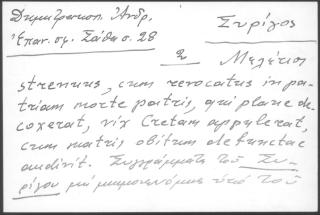 Δημητρακοπ. Ἀνδρ. Συρίγος
Ἐπαν. σφ. Σάθα σ. 28
2 Μελέτιος
strenuus, cum revocatus in pa-
triam morte patris, qui plane de-
coxerat, vix Cretam appulerat,
cum matris obitum defunctae
audivit. Συγγράμματα τοῦ Συ-
ρίγου μὴ μνημονευόμενα ὑπὸ τοῦ